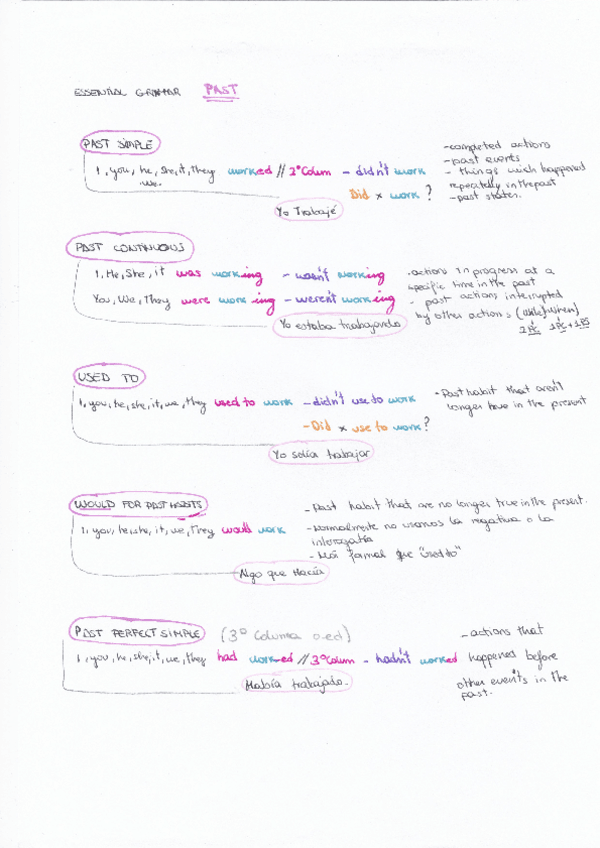 ESSENTIAL GRAMMAR PAST
PAST SIMPLE
I, you, he, she, it, They worked // 2ª Colum - didn't work
We.
Did x work?
Yo Trabajé
-completed actions
-past events
- things wich happened
repeatedly in the past
-past states.
PAST CONTINUOUS
I, He, She, it was working - wasn't working
You, We, They were working - weren't working
Yo estaba trabajando
-actions in progress at a
specific time in the past
- past actions interrupted
by other actions (while/when)
USED TO
I, you, he, she, it, we, they used to work - didn't use to work
- Did x use to work?
Yo solía trabajar
- Past habit that aren't
longer true in the present
WOULD FOR PAST HABITS
I, you, he, she, it, we, They would work
Algo que Hacía
- Past habit that are no longer true in the present.
- Normalmente no usamos la negativa o la
interrogativa
- Más formal que "used to"
PAST PERFECT SIMPLE (3ª Columna o-ed)
I, you, he, she, it, we, they had worked // 3ª Colum - hadn't worked
Había trabajado.
- actions that
happened before
other events in the
past.